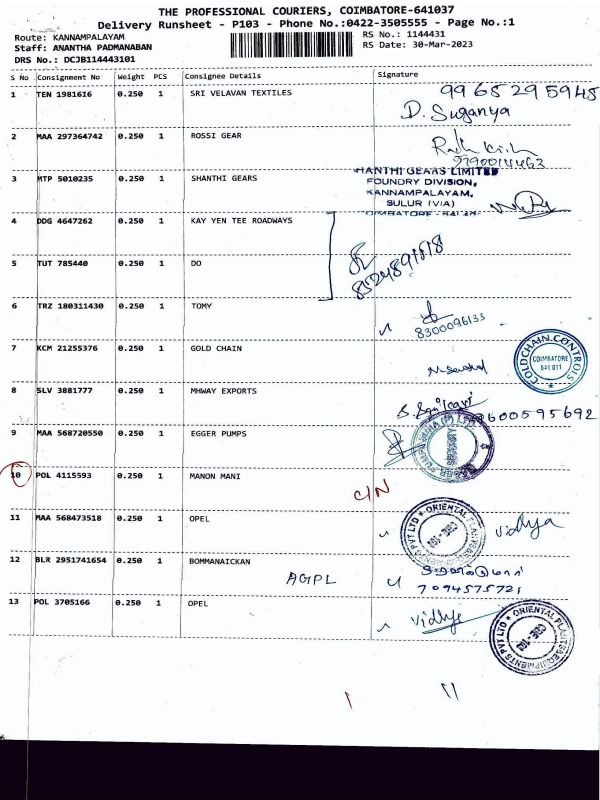 THE PROFESSIONAL COURIERS, COIMBATORE-641037
Delivery Runsheet - P103 - Phone No.:0422-3505555 - Page No.:1
Route: KANNAMPALAYAM
Staff: ANANTHA PADMANABAN
DRS No.: DCJB114443101
RS No.: 1144431
RS Date: 30-Mar-2023
S No Consignment No Weight PCS Consignee Details Signature
1 TEN 1981616 0.250 1 SRI VELAVAN TEXTILES 9965295945
D. Suganya
2 MAA 297364742 0.250 1 ROSSI GEAR
9790014463
3 MTP 5010235 0.250 1 SHANTHI GEARS
HANTHI GEARS LIMITED
FOUNDRY DIVISION,
KANNAMPALAYAM,
SULUR (VIA)
4 DDG 4647262 0.250 1 KAY YEN TEE ROADWAYS
5 TUT 785440 0.250 1 DO
6 TRZ 180311430 0.250 1 TOMY
8300096133
7 KCM 21255376 0.250 1 GOLD CHAIN
COLDCHAIN CONTROLS
COIMBATORE
641 011
8 SLV 3881777 0.250 1 MHWAY EXPORTS
9600595692
9 MAA 568720550 0.250 1 EGGER PUMPS
10 POL 4115593 0.250 1 MANON MANI
C/N
11 MAA 568473518 0.250 1 OPEL
vidhya
12 BLR 2951741654 0.250 1 BOMMANAICKAN
AGPL
7094575721
13 POL 3705166 0.250 1 OPEL
vidhya
ORIENTAL PLANTS & EQUIPMENTS PVT LTD
11